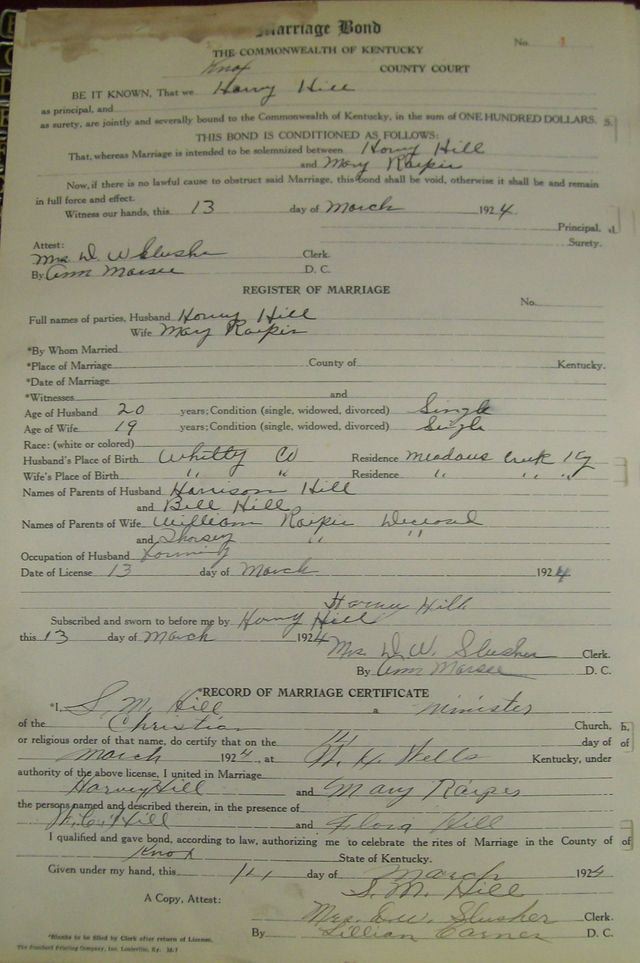 Marriage Bond
No. 1
THE COMMONWEALTH OF KENTUCKY
Knox COUNTY COURT
BE IT KNOWN, That we Harvy Hill
as principal, and
as surety, are jointly and severally bound to the Commonwealth of Kentucky, in the sum of ONE HUNDRED DOLLARS.
THIS BOND IS CONDITIONED AS FOLLOWS:
That, whereas Marriage is intended to be solemnized between Harvy Hill
and Mary
Now, if there is no lawful cause to obstruct said Marriage, this bond shall be void, otherwise it shall be and remain
in full force and effect.
Witness our hands, this 13 day of March 1924.
Principal.
Surety.
Attest:
Mrs. D. W Slusher Clerk.
By Ann Marsee D. C.
REGISTER OF MARRIAGE
No.
Full names of parties, Husband Harvy Hill
Wife Mary
*By Whom Married
*Place of Marriage County of Kentucky.
*Date of Marriage
*Witnesses and
Age of Husband 20 years; Condition (single, widowed, divorced) Single
Age of Wife 19 years; Condition (single, widowed, divorced) Single
Race: (white or colored)
Husband's Place of Birth Whitly Co Residence Meadows Creek Ky
Wife's Place of Birth " " Residence " " "
Names of Parents of Husband Harrison Hill
and Bell Hill
Names of Parents of Wife William
and " "
Occupation of Husband Farming
Date of License 13 day of March 1924
Harvy Hill
Subscribed and sworn to before me by Harvy Hill
this 13 day of March 1924
Mrs. D. W. Slusher Clerk.
By Ann Marsee D. C.
*RECORD OF MARRIAGE CERTIFICATE
*I, S. M. Hill a minister
of the Christian Church,
or religious order of that name, do certify that on the 14 day of
March 1924, at Wells Kentucky, under
authority of the above license, I united in Marriage
Harvey Hill and Mary Raipes
the persons named and described therein, in the presence of
Hill and Flora Hill
I qualified and gave bond, according to law, authorizing me to celebrate the rites of Marriage in the County of
Knox State of Kentucky.
Given under my hand, this 14 day of March 1924
S. M. Hill
A Copy, Attest:
Mrs. D. W. Slusher Clerk.
By Lillian Carnes D. C.
*Blanks to be filled by Clerk after return of License.
The Standard Printing Company, Inc. Louisville, Ky.